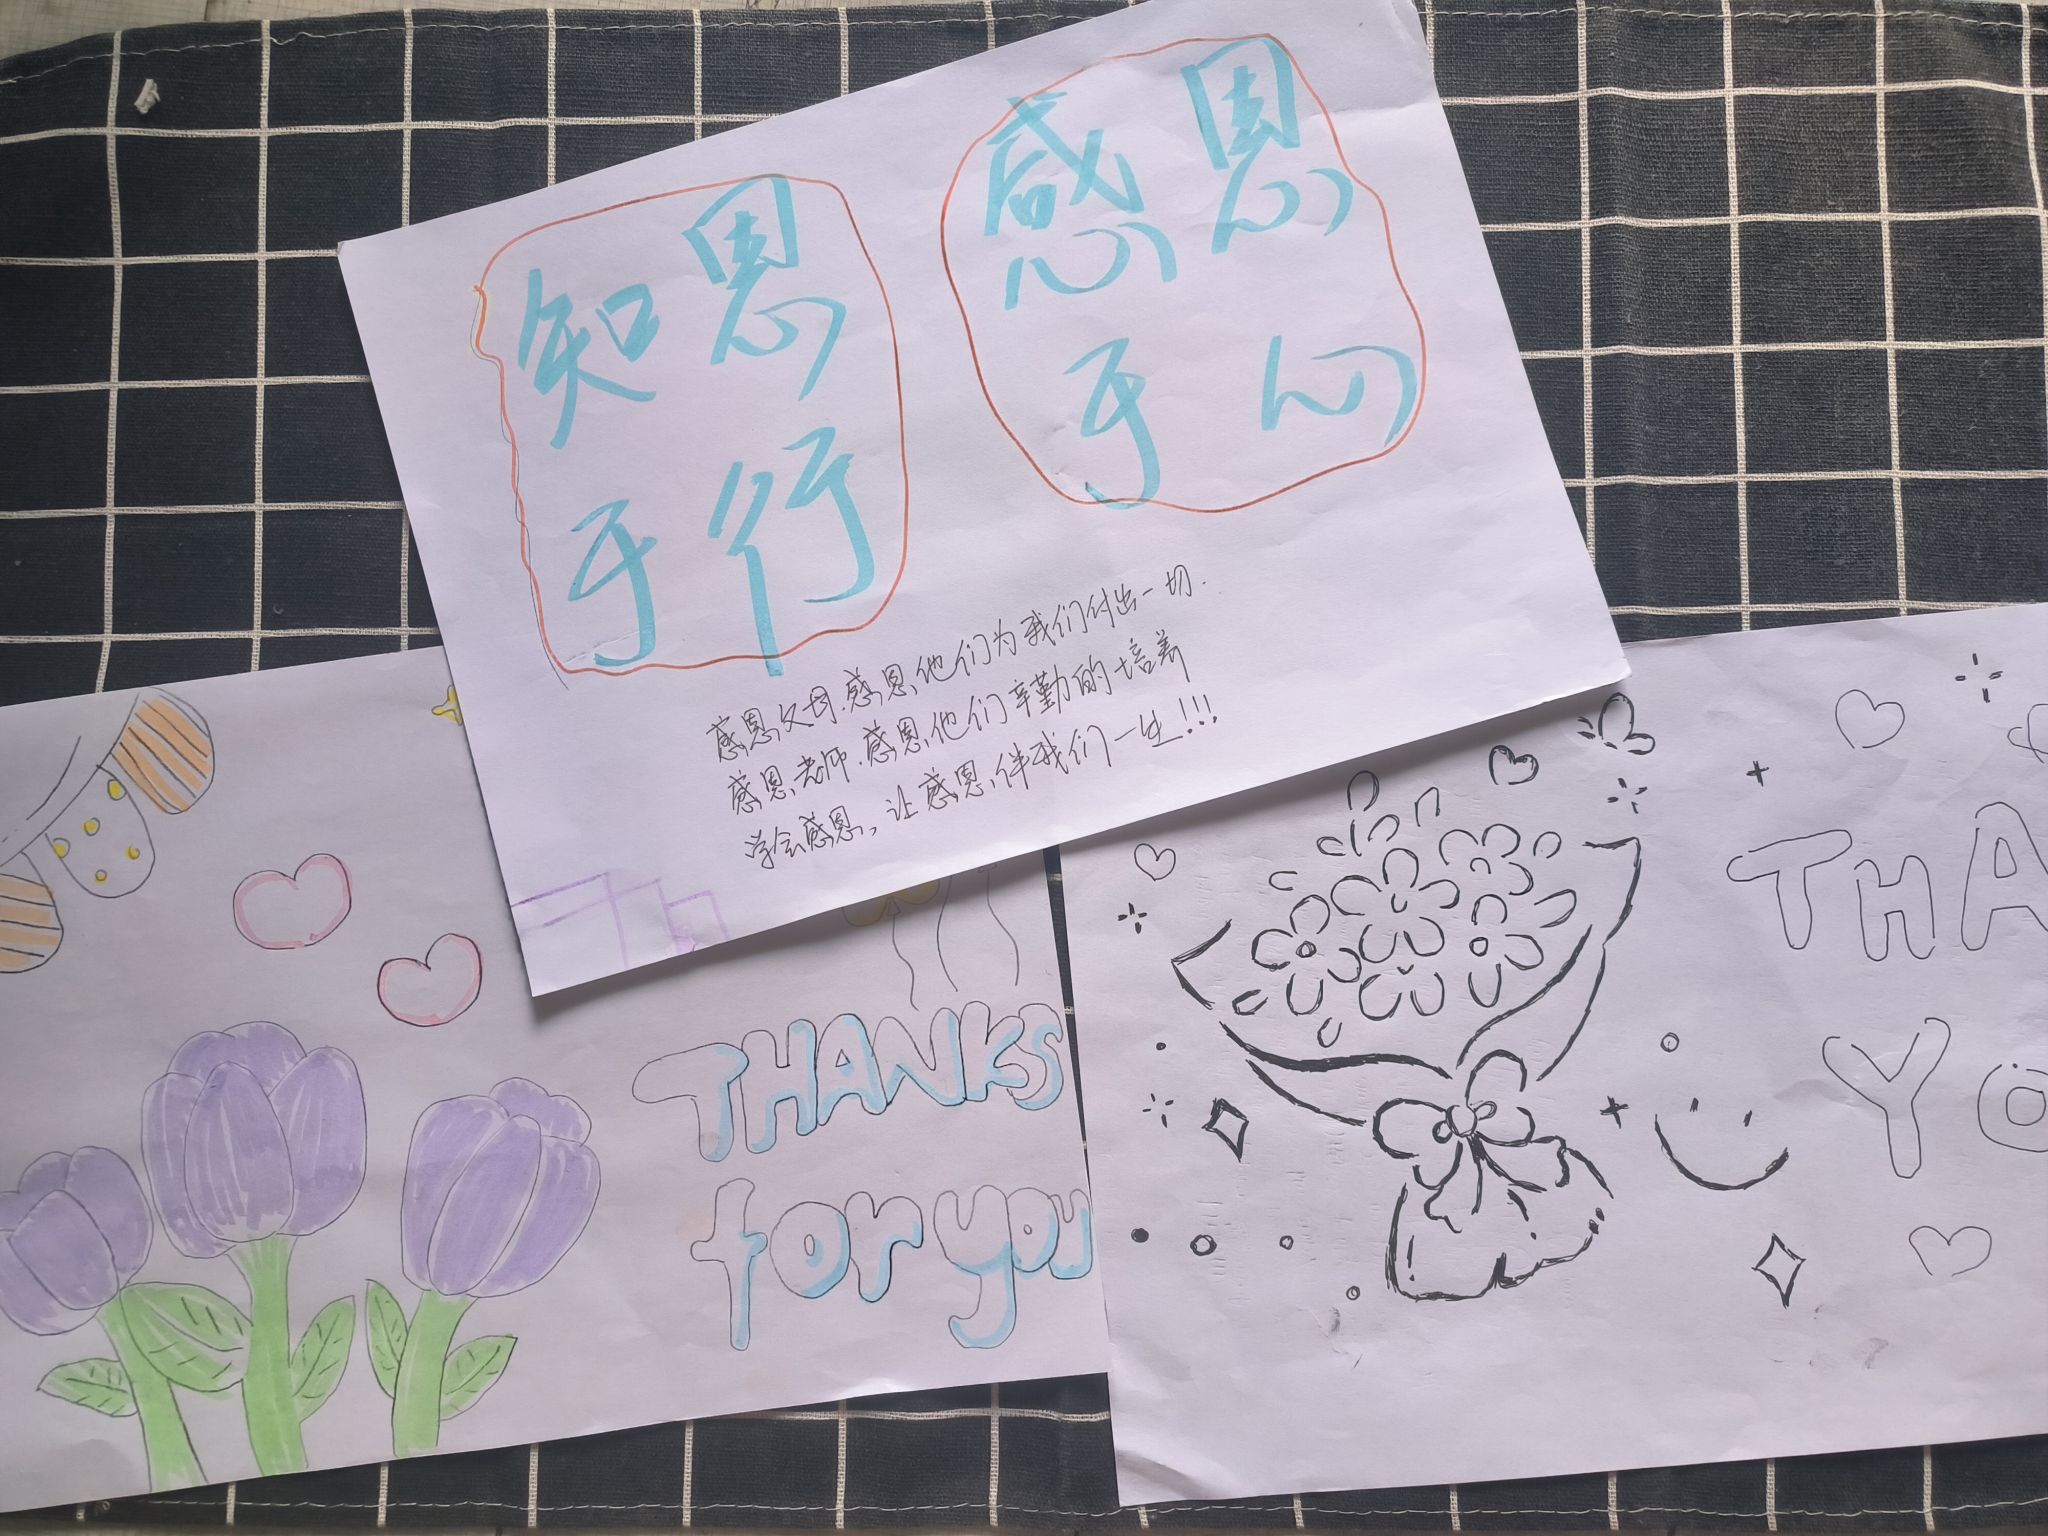 知恩
于行
感恩
于心
感恩父母.感恩他们为我们付出一切.
感恩老师.感恩他们辛勤的培养
学会感恩,让感恩伴我们一生!!!
THANKS
for you
THA
YO